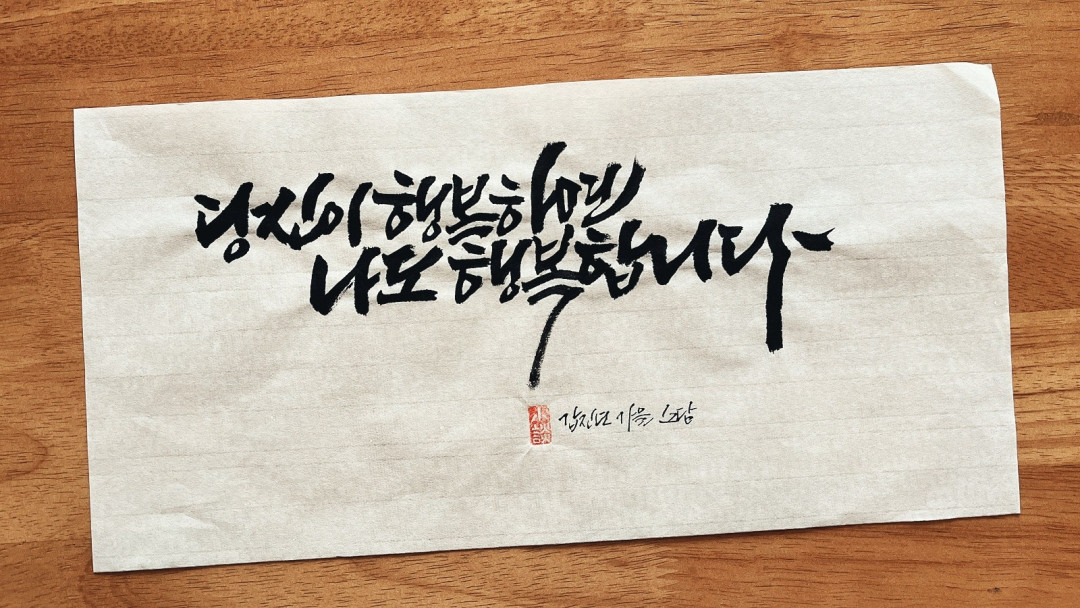 당신이 행복하면
나도 행복합니다
갑진년 가을 소담